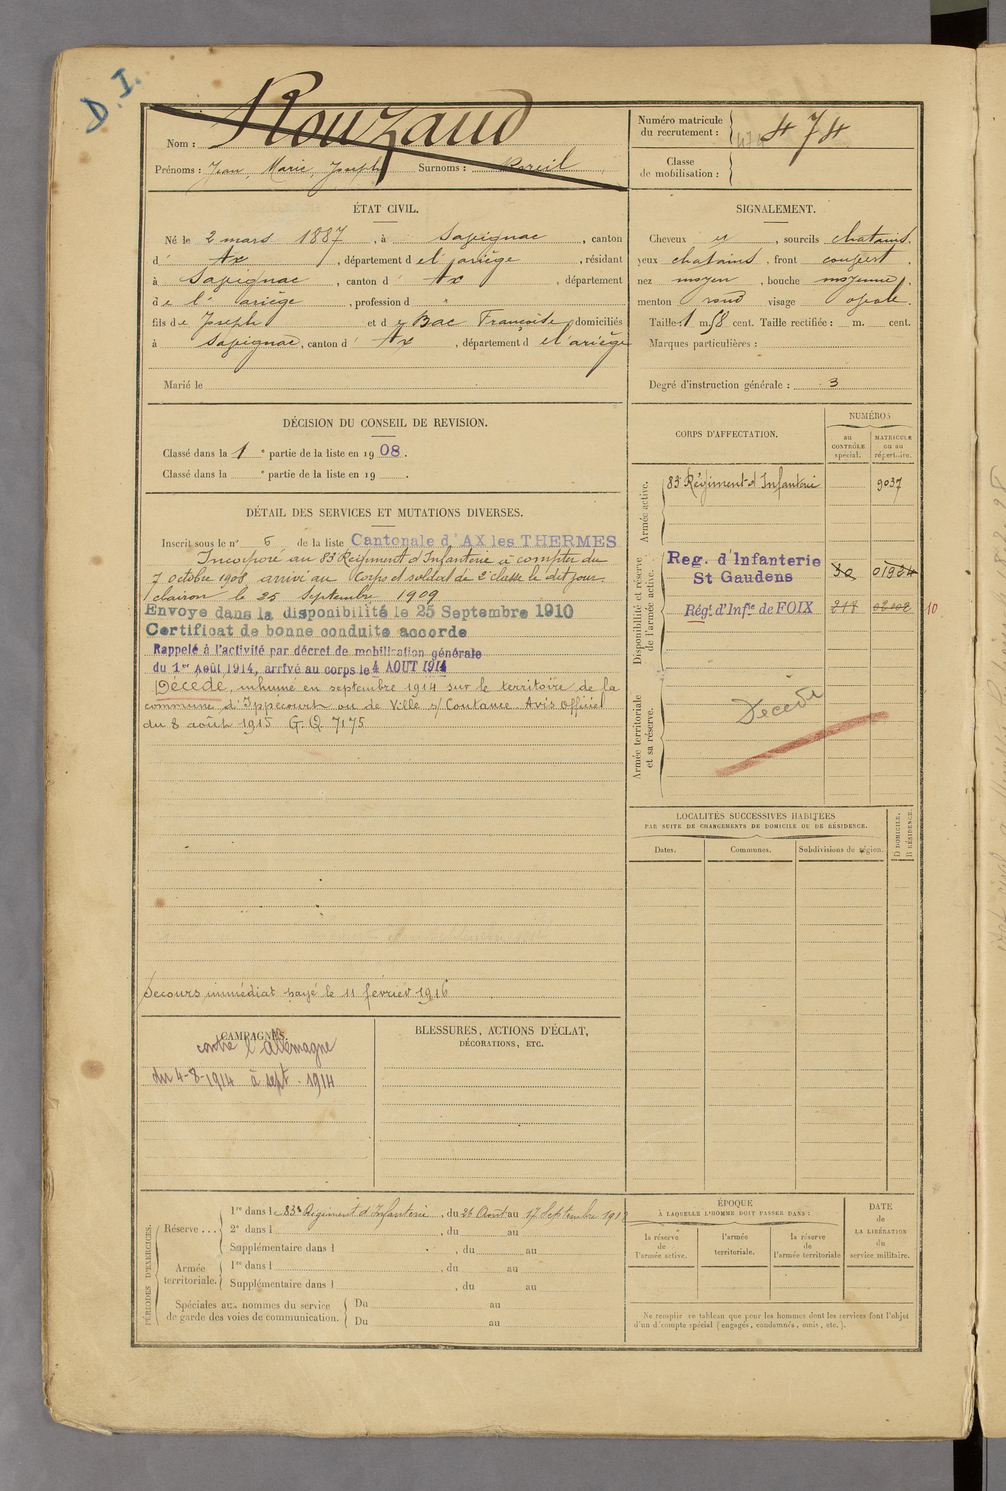 D. I.
Nom : Rouzaud
Prénoms : Jean, Marie, Joseph Surnoms :
Numéro matricule du recrutement : 474
474
Classe de mobilisation :
ÉTAT CIVIL.
Né le 2 mars 1887, à Savignac, canton
d' Ax, département de l'ariège, résidant
à Savignac, canton d' Ax, département
de l' ariège, profession d "
fils de Joseph et de Bac Françoise, domiciliés
à Savignac, canton d' Ax, département de l'ariège
Marié le
SIGNALEMENT.
Cheveux et, sourcils chatains.
yeux chatains, front couvert,
nez moyen, bouche moyenne,
menton rond visage ovale.
Taille : 1 m. 58 cent. Taille rectifiée : m. cent.
Marques particulières :
Degré d'instruction générale : 3
DÉCISION DU CONSEIL DE REVISION.
Classé dans la 1e partie de la liste en 1908.
Classé dans la e partie de la liste en 19 .
DÉTAIL DES SERVICES ET MUTATIONS DIVERSES.
Inscrit sous le n° 5 de la liste Cantonale d'AX les THERMES
Incorporé au 83 Régiment d'Infanterie à compter du
7 octobre 1908 arrivé au Corps et soldat de 2e classe le dit jour
clairon le 25 Septembre 1909
Envoye dans la disponibilité le 25 Septembre 1910
Certificat de bonne conduite accorde
Rappelé à l'activité par décret de mobilisation générale
du 1er Août 1914, arrivé au corps le 4 AOUT 1914
Décédé, inhumé en septembre 1914 sur le territoire de la
commune d'Ippecourt ou de Ville s/ Coutance. Avis Officiel
du 8 août 1915 G.Q. 7175
Secours immédiat payé le 11 février 1916
CORPS D'AFFECTATION.
NUMÉROS
au CONTRÔLE spécial.
MATRICULE ou au répertoire.
Armée active.
83e Régiment d'Infanterie 9037
Disponibilité et réserve de l'armée active.
Reg. d'Infanterie
St Gaudens
Régt d'Infie de FOIX 217 10
Armée territoriale et sa réserve.
Décédé
LOCALITÉS SUCCESSIVES HABITÉES
PAR SUITE DE CHANGEMENTS DE DOMICILE OU DE RÉSIDENCE.
Dates. Communes. Subdivisions de région.
D DOMICILE.
R RÉSIDENCE.
CAMPAGNES.
contre l'Allemagne
du 4-8-1914 à sept. 1914
BLESSURES, ACTIONS D'ÉCLAT,
DÉCORATIONS, ETC.
PÉRIODES D'EXERCICES.
Réserve ...
1re dans le 83e Régiment d'Infanterie, du 26 Août au 17 Septembre 191
2e dans l , du au
Supplémentaire dans l , du au
Armée territoriale.
1re dans l , du au
Supplémentaire dans l , du au
Spéciales aux hommes du service de garde des voies de communication.
Du au
Du au
ÉPOQUE
À LAQUELLE L'HOMME DOIT PASSER DANS :
la réserve de l'armée active.
l'armée territoriale.
la réserve de l'armée territoriale
DATE de LA LIBÉRATION du service militaire.
Ne remplir ce tableau que pour les hommes dont les services font l'objet
d'un décompte spécial (engagés, condamnés, omis, etc.).